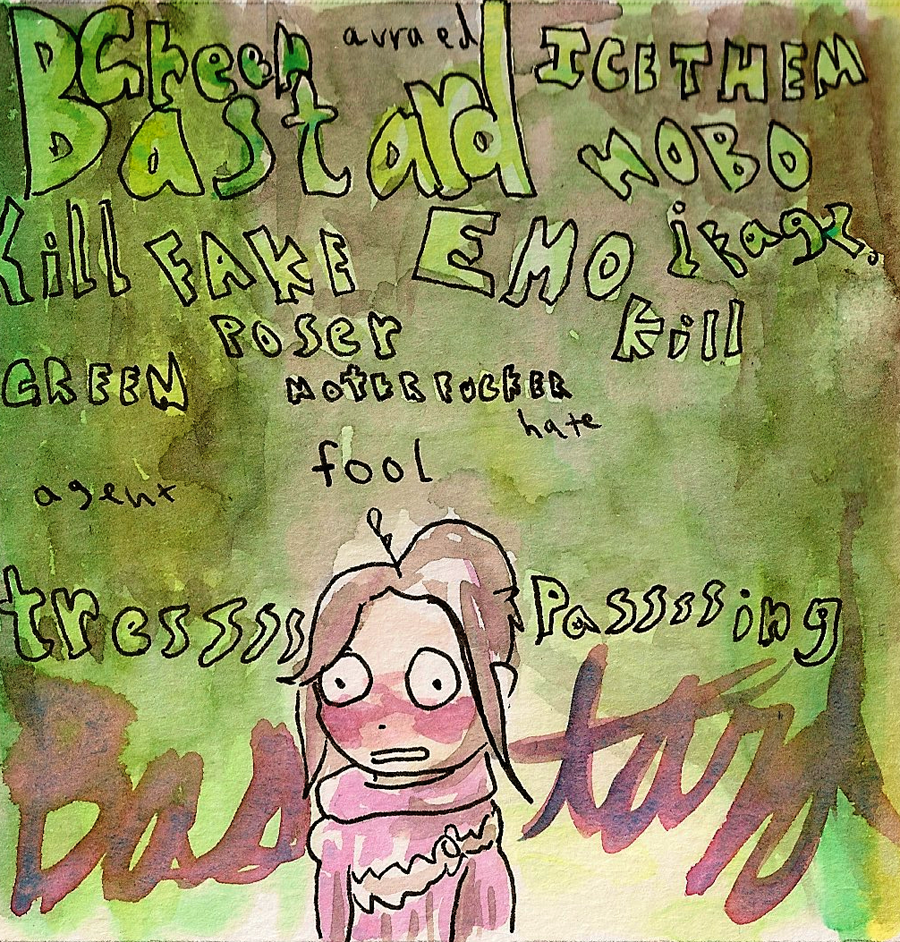 Green aura ed ICE THEM
Bastard HOBO
Kill FAKE EMO
POSER Kill
GREEN MOTERFUCKER
hate
fool
agent
tressssss Passsssing
Bastard